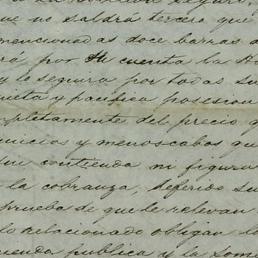 que no saldrá tercero que
mencionadas doce barras d
rá por su cuenta la
y lo seguira por todas su
uieta y pacifica posesion
pletamente del precio q
uicios y menoscabos que
sin contienda ni figura
la cobranza, deferido su
prueba de que le relevan
lo relacionado obligan
uenda publica y la some